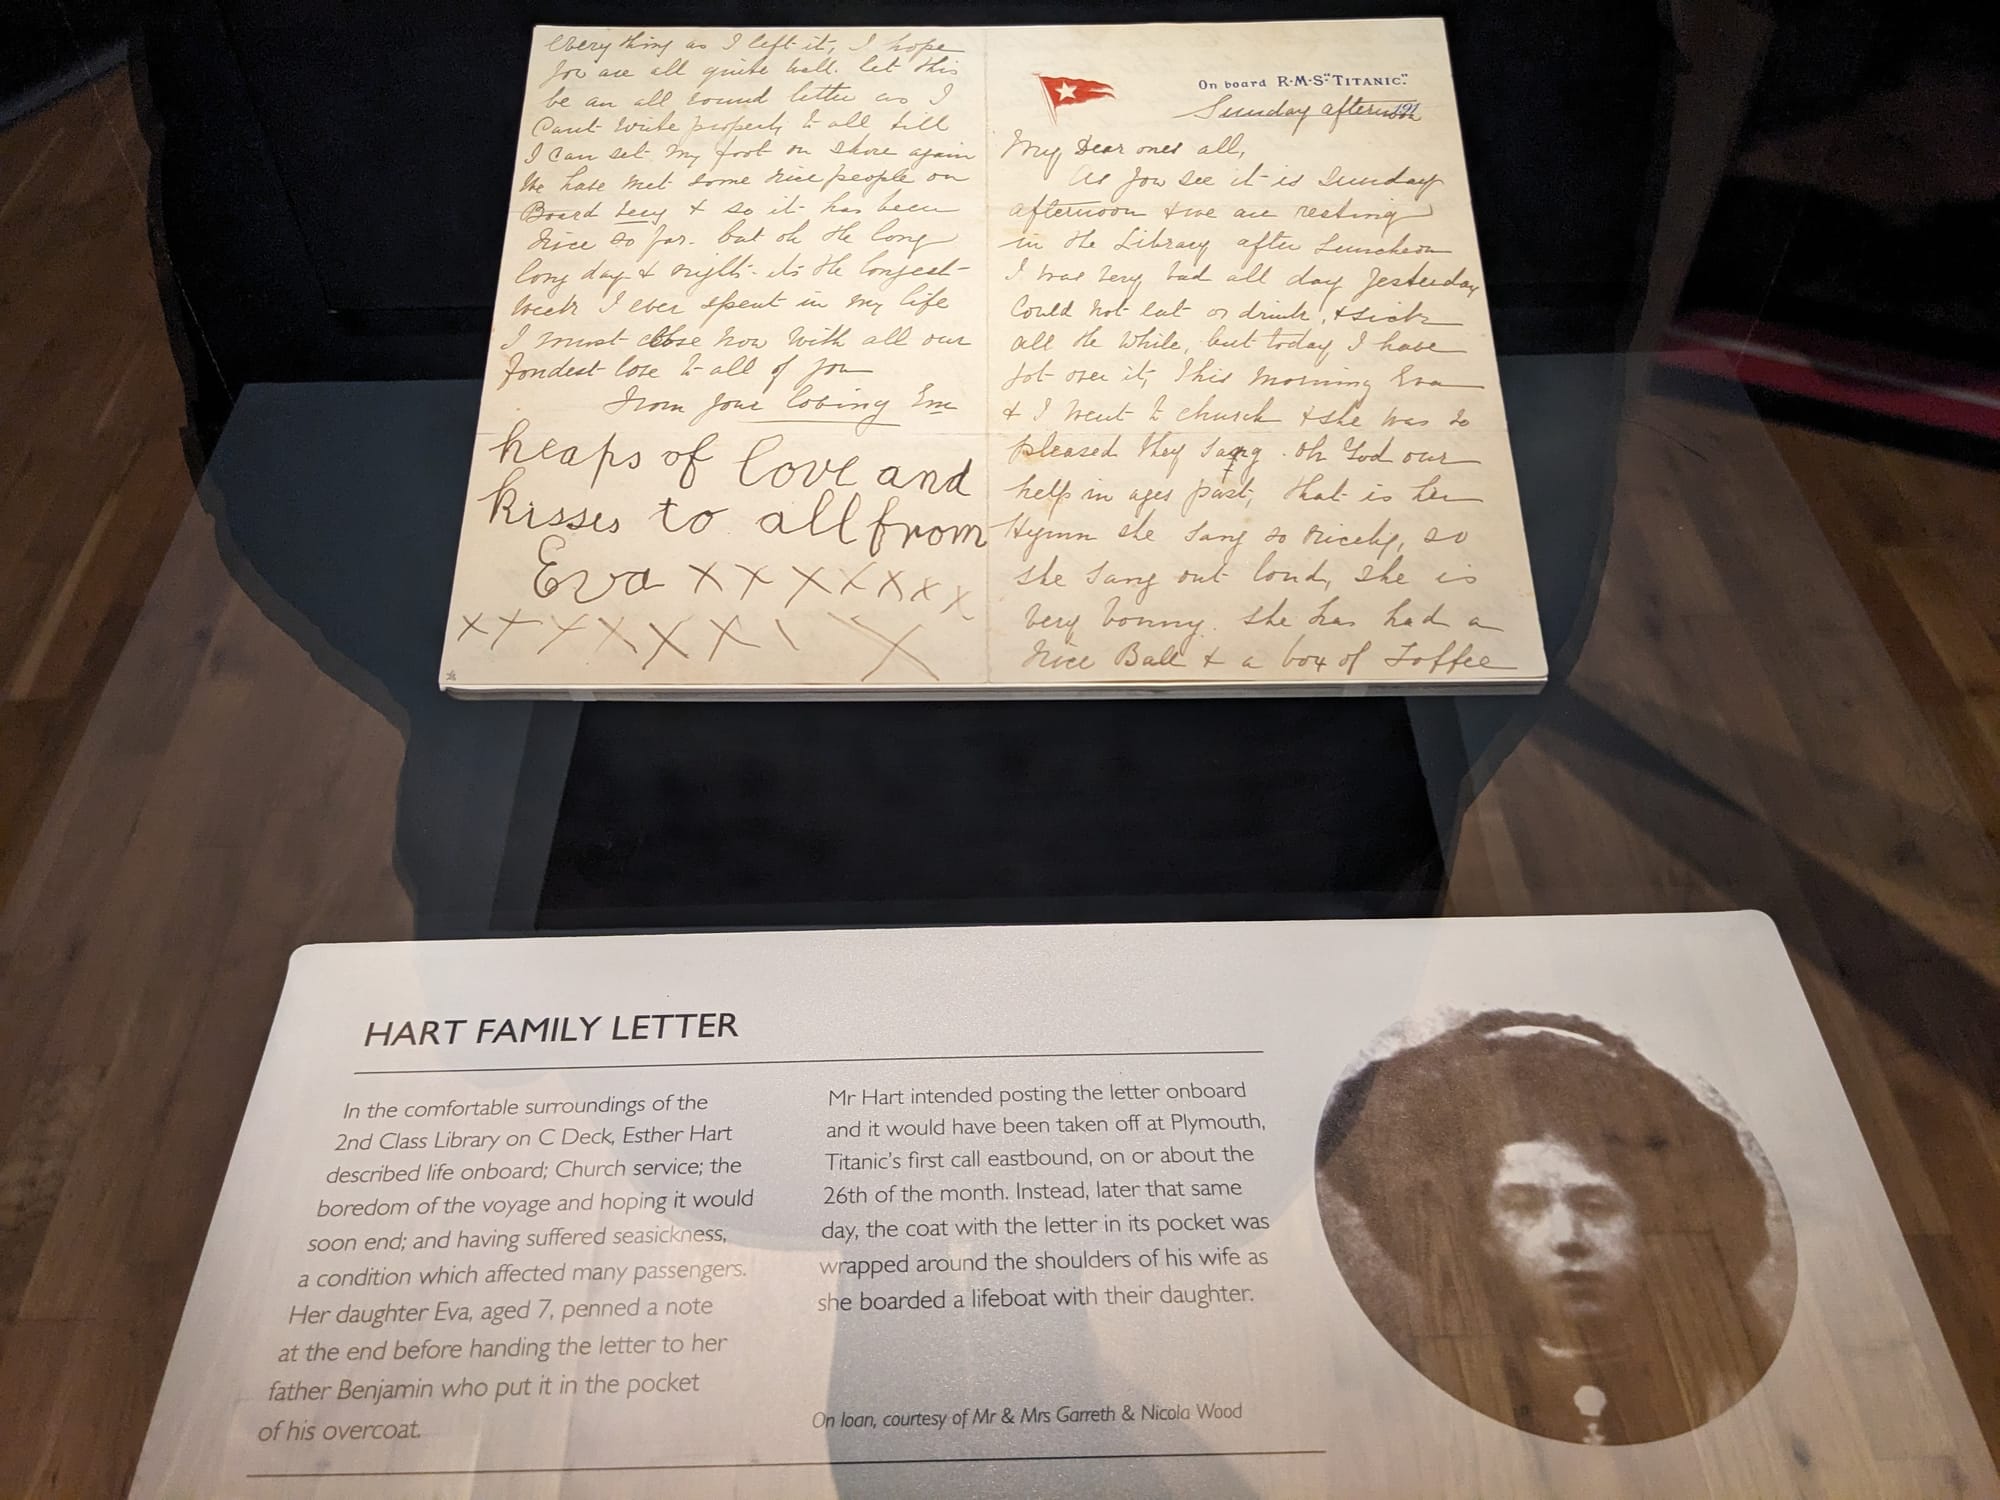 everything as I left it, I hope
you are all quite well. let this
be an all round letter as I
Cant write properly to all till
I can set my foot on shore again
We have met some nice people on
Board Lucy & so it has been
nice so far. but oh the long
long day & nights its the longest
week I ever spent in my life
I must close now with all our
fondest love to all of you
from your loving Em
heaps of love and
kisses to all from
Eva x x x x x x x
x x x x x x \ x
On board R·M·S "TITANIC."
Sunday afternoon
My Dear ones all,
As you see it is Sunday
afternoon & we are resting
in the Library after Luncheon
I was very bad all day Yesterday
Could not eat or drink, & sick
all the while, but today I have
got over it, This morning Eva
& I went to church & she was so
pleased they sang. Oh God our
help in ages past, that is her
Hymn she sang so nicely, so
she sang out loud, she is
very bonny. She has had a
nice Ball & a box of Toffee
HART FAMILY LETTER
In the comfortable surroundings of the
2nd Class Library on C Deck, Esther Hart
described life onboard; Church service; the
boredom of the voyage and hoping it would
soon end; and having suffered seasickness,
a condition which affected many passengers.
Her daughter Eva, aged 7, penned a note
at the end before handing the letter to her
father Benjamin who put it in the pocket
of his overcoat.
Mr Hart intended posting the letter onboard
and it would have been taken off at Plymouth,
Titanic's first call eastbound, on or about the
26th of the month. Instead, later that same
day, the coat with the letter in its pocket was
wrapped around the shoulders of his wife as
she boarded a lifeboat with their daughter.
On loan, courtesy of Mr & Mrs Garreth & Nicola Wood